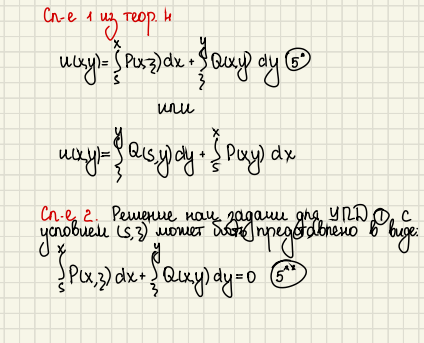 Сл-е 1 из теор. 4
u(x,y)=∫_s^x P(x,ξ)dx+∫_ξ^y Q(x,y) dy (5*)
или
u(x,y)=∫_ξ^y Q(s,y)dy+∫_s^x P(x,y) dx
Сл-е 2. Решение нач задачи для УПД (1) с
условием (s,ξ) может быть представлено в виде:
∫_s^x P(x,ξ)dx+∫_ξ^y Q(x,y)dy=0 (5**)